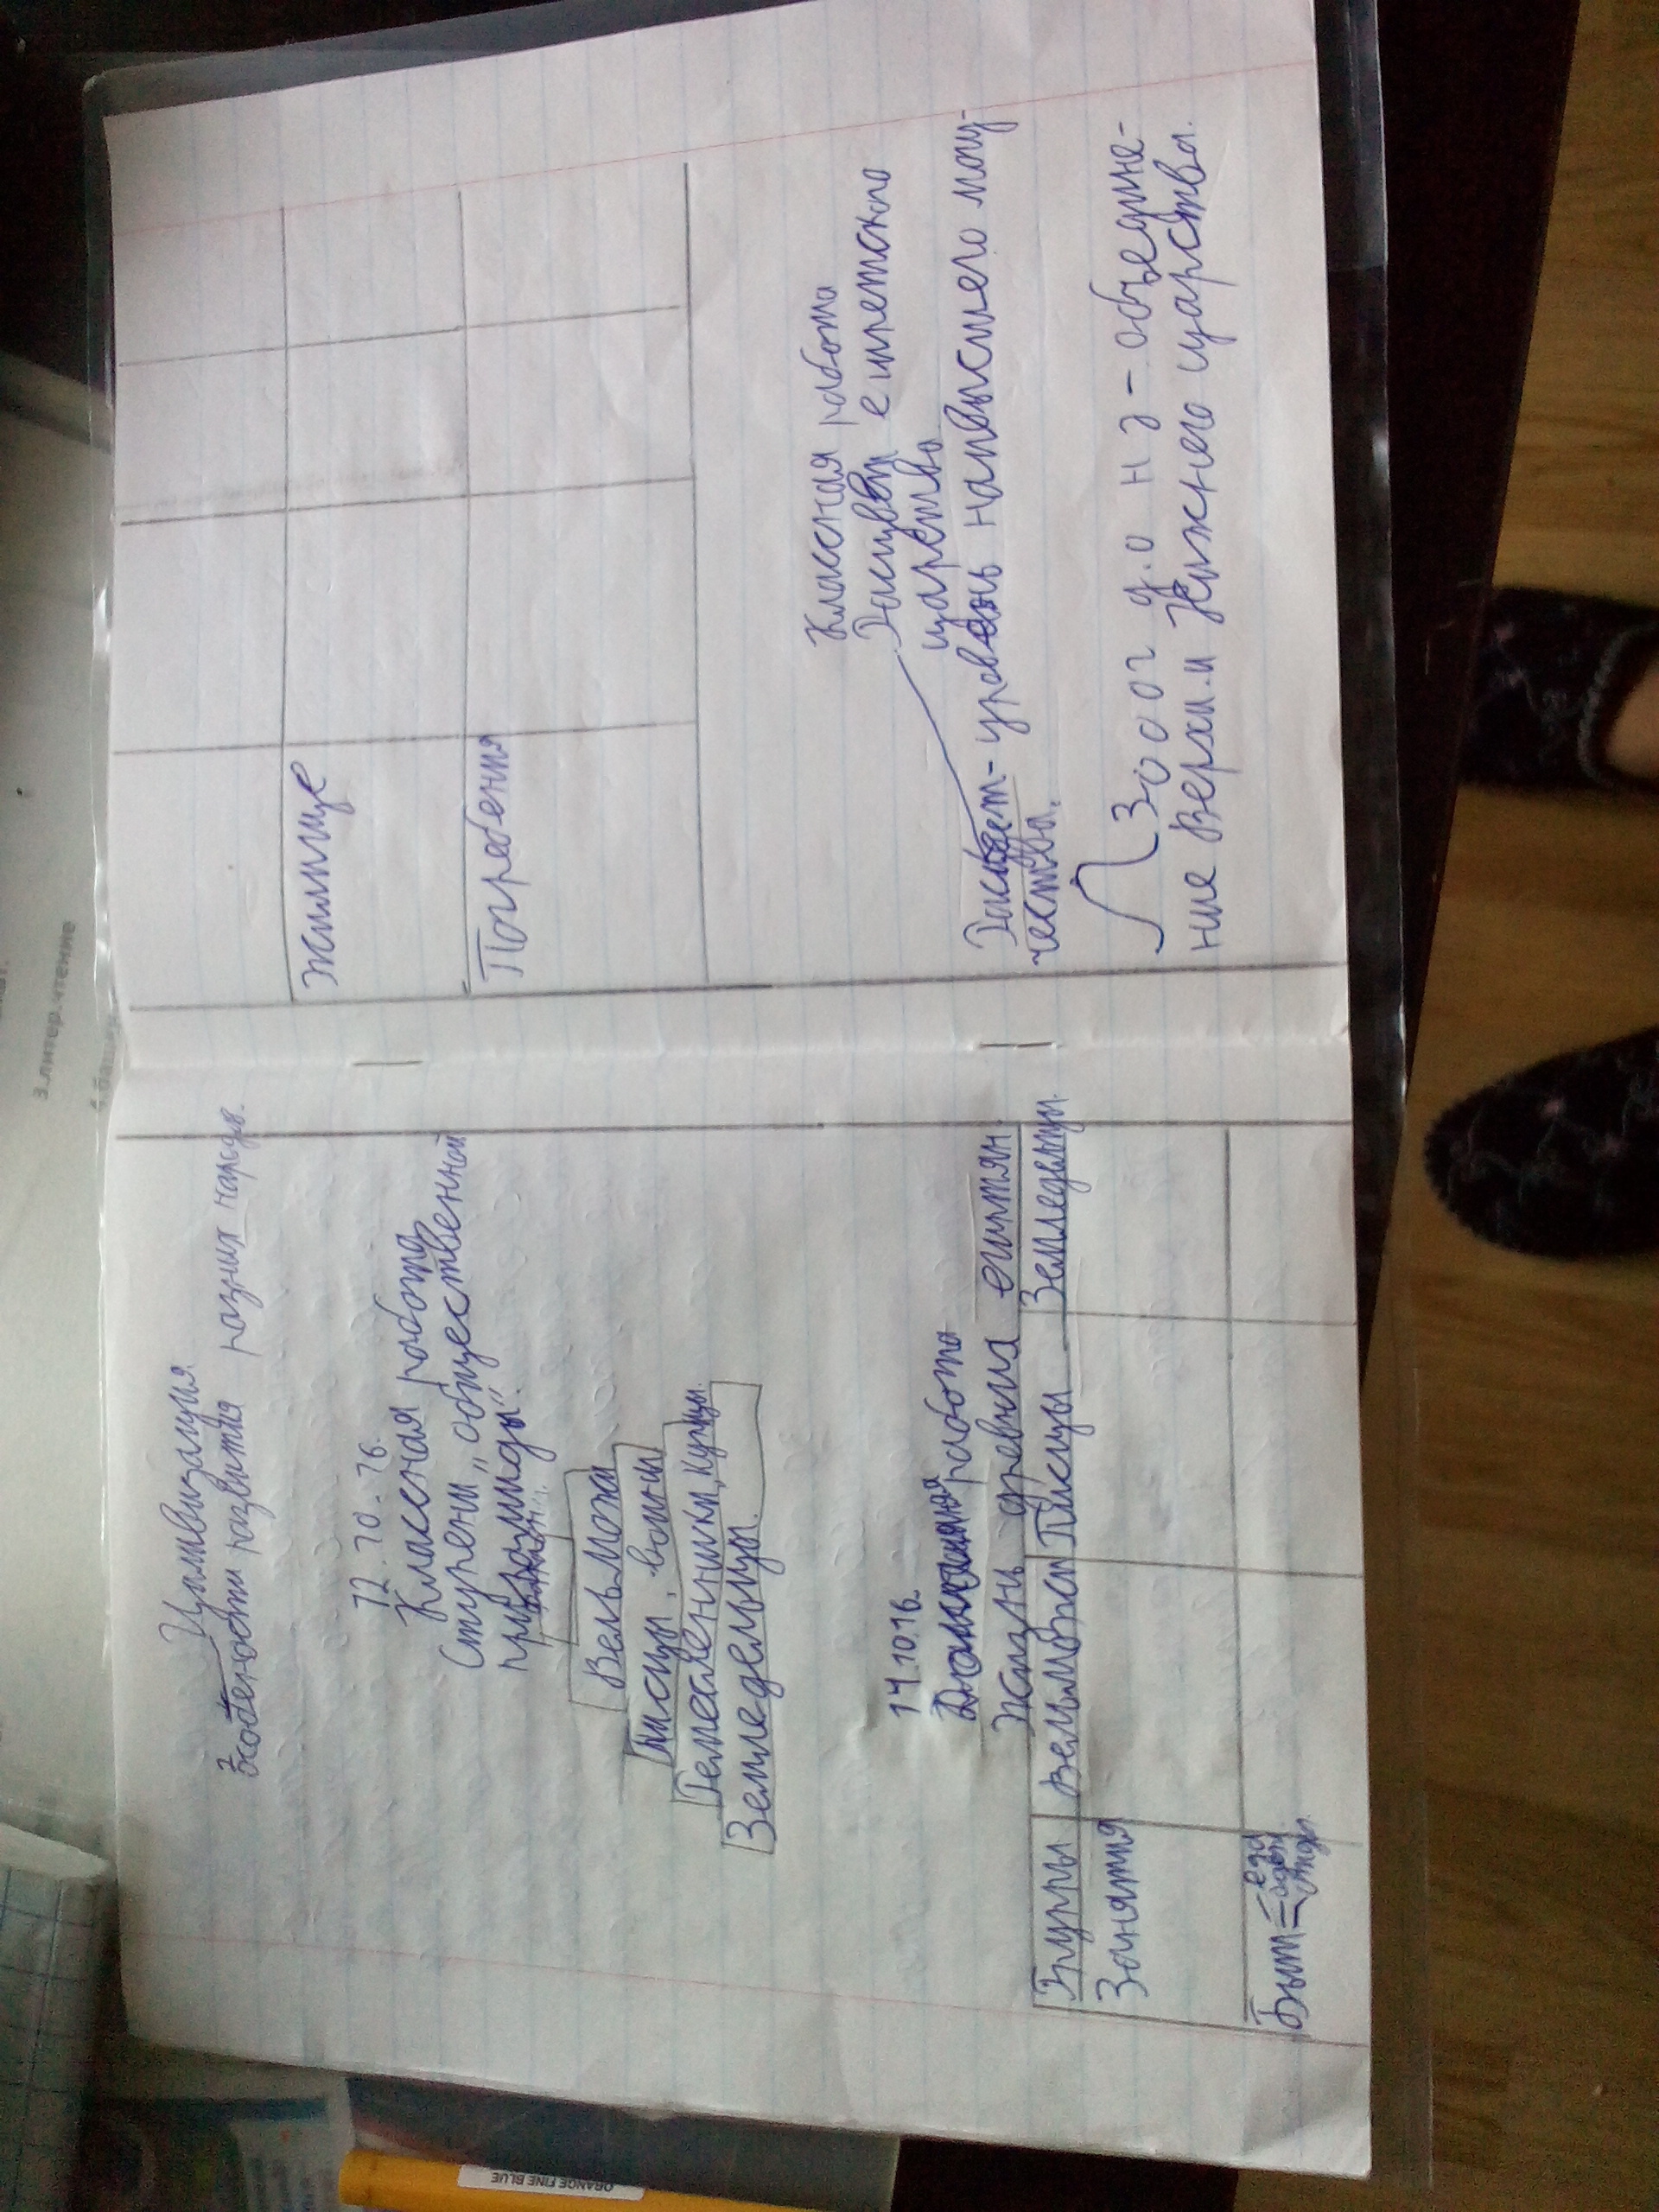 Цивилизация
Особеность развития разних народов.
12.10.16.
Классная работа
Ступени „общественной
пирамиды".
Вельможи
Писцы, воины
Ремесленники, купцы.
Земледельцы.
14.10.16.
Домашняя работа
Жизнь древних египтян
Группы Вельможи Писцы Земледельцы.
Занятия
Быт = еда
Жилище
Погребения
Классная работа
Расцвет египетского
царства
Расцвет - уровень наивысшего могу-
чества.
3000 г д.о н э - объедине-
ние Верхн. и Нижнего царства.
3.литер.чтение
ORANGE FINE BLUE